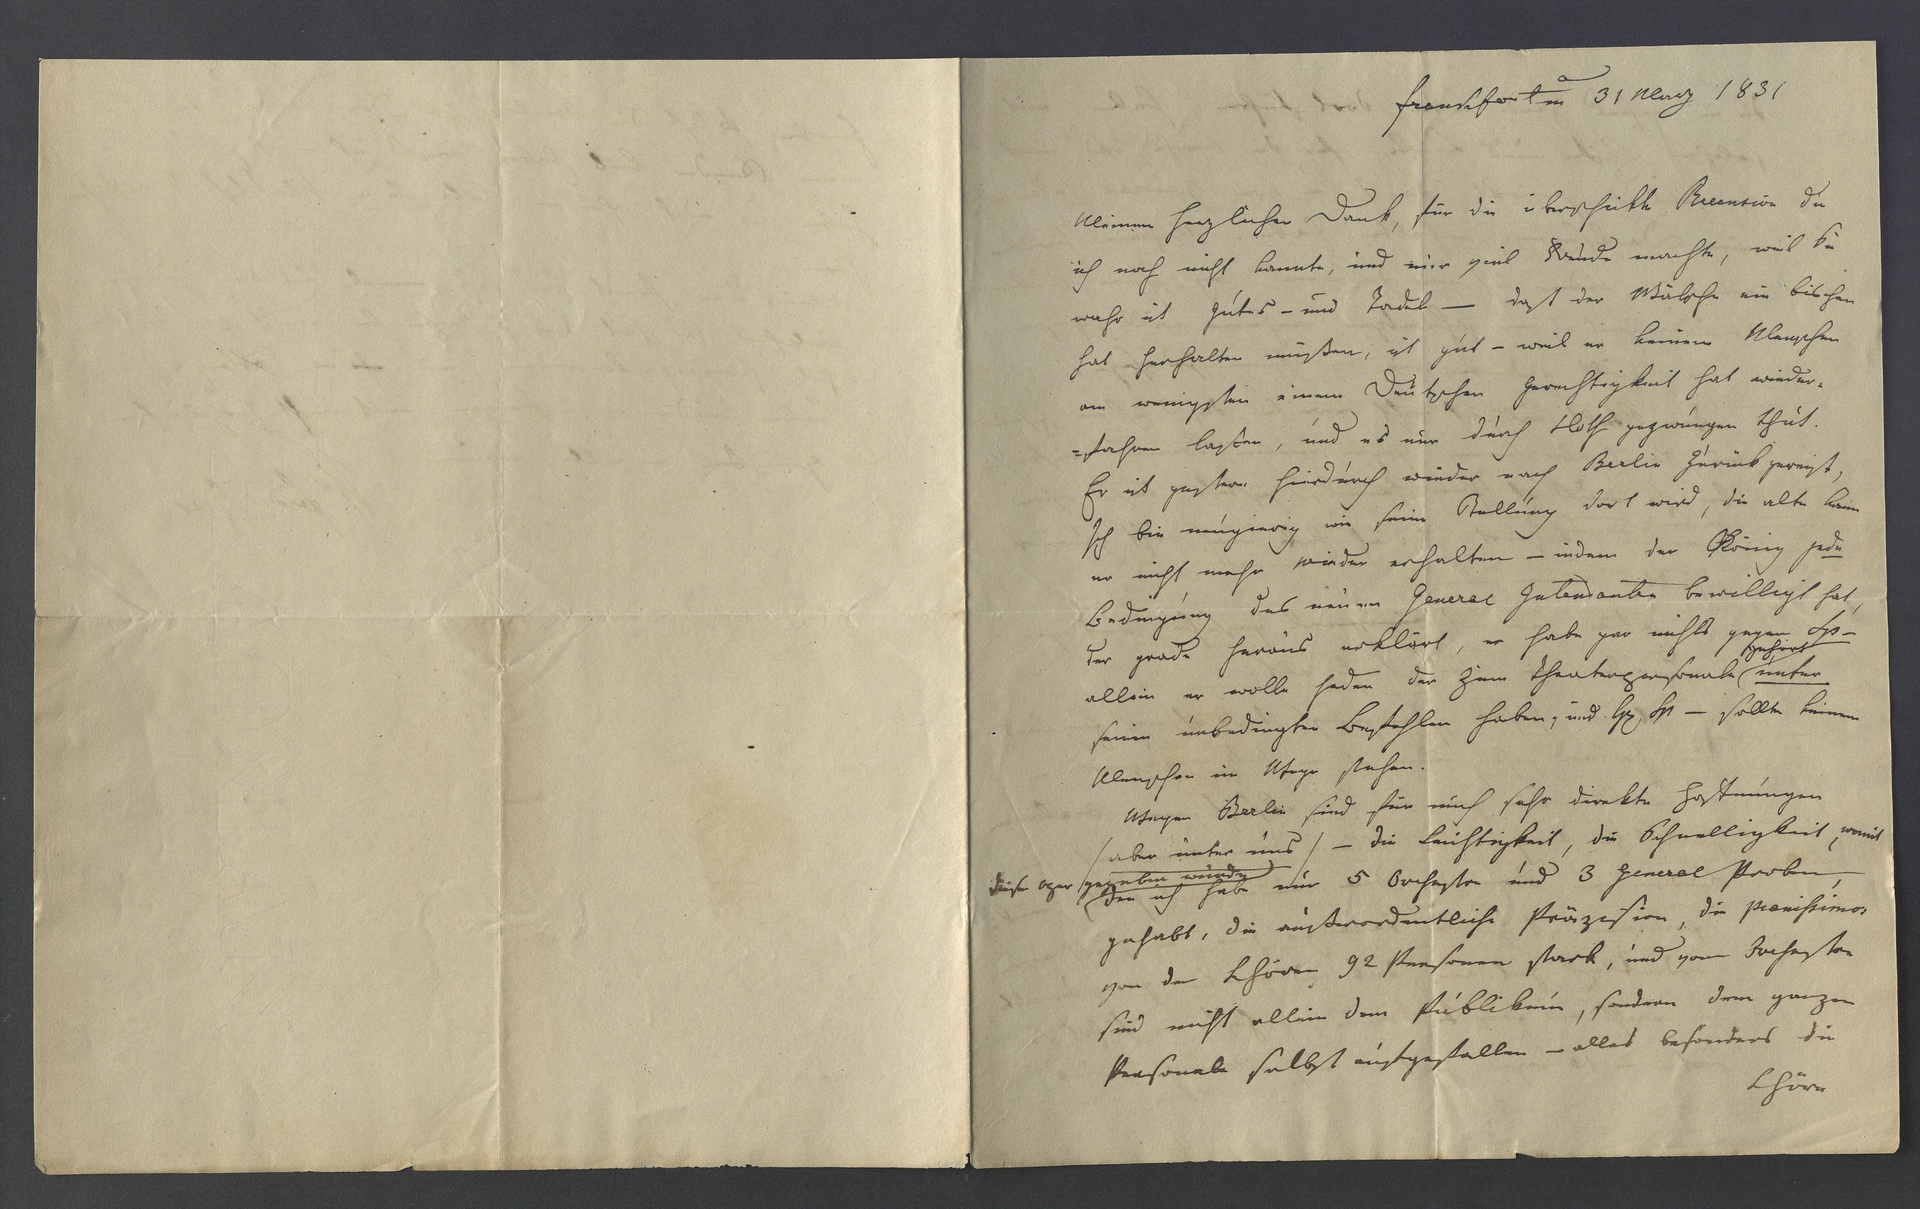 Frankfort a/m 31 März 1831
Meinen herzlichen Dank, für die überschickte Recension die
ich noch nicht kannte, und mir viel Freude machte, weil sie
wahr ist Gutes - und Tadel — daß der Wälsche ein bischen
hat herhalten müßen, ist gut - weil er keinem Menschen
am wenigsten einem Deutschen Gerechtigkeit hat wieder-
=fahren laßen, und es nur durch Noth gezwungen thut.
Er ist gestern hierdurch wieder nach Berlin zurück gereist,
Ich bin neugierig wie seine Stellung dort wird, die alte kann
er nicht mehr wieder erhalten — indem der König jede
Bedingung des neuen General Intendanten bewilligt hat,
der grade heraus erklärt, er habe gar nichts gegen Sp—
allein er wolle jeden der zum Theaterpersonale gehört unter
seinen unbedingten Befehlen haben, und Sp — sollte keinem
Menschen im Wege stehen.
Wegen Berlin sind für mich sehr direkte Hoffnungen
/ aber unter uns / — die Leichtigkeit, die Schnelligkeit, womit
diese Oper gegeben wurde
den ich habe nur 5 Orchester und 3 General Proben,
gehabt, die außerordentliche Präzission, die pianissimos
von den Chören 92 Personen stark, und vom Orchester
sind nicht allein dem Publikum, sondern dem ganzen
Personale selbst aufgefallen — alles besonders die
Chöre